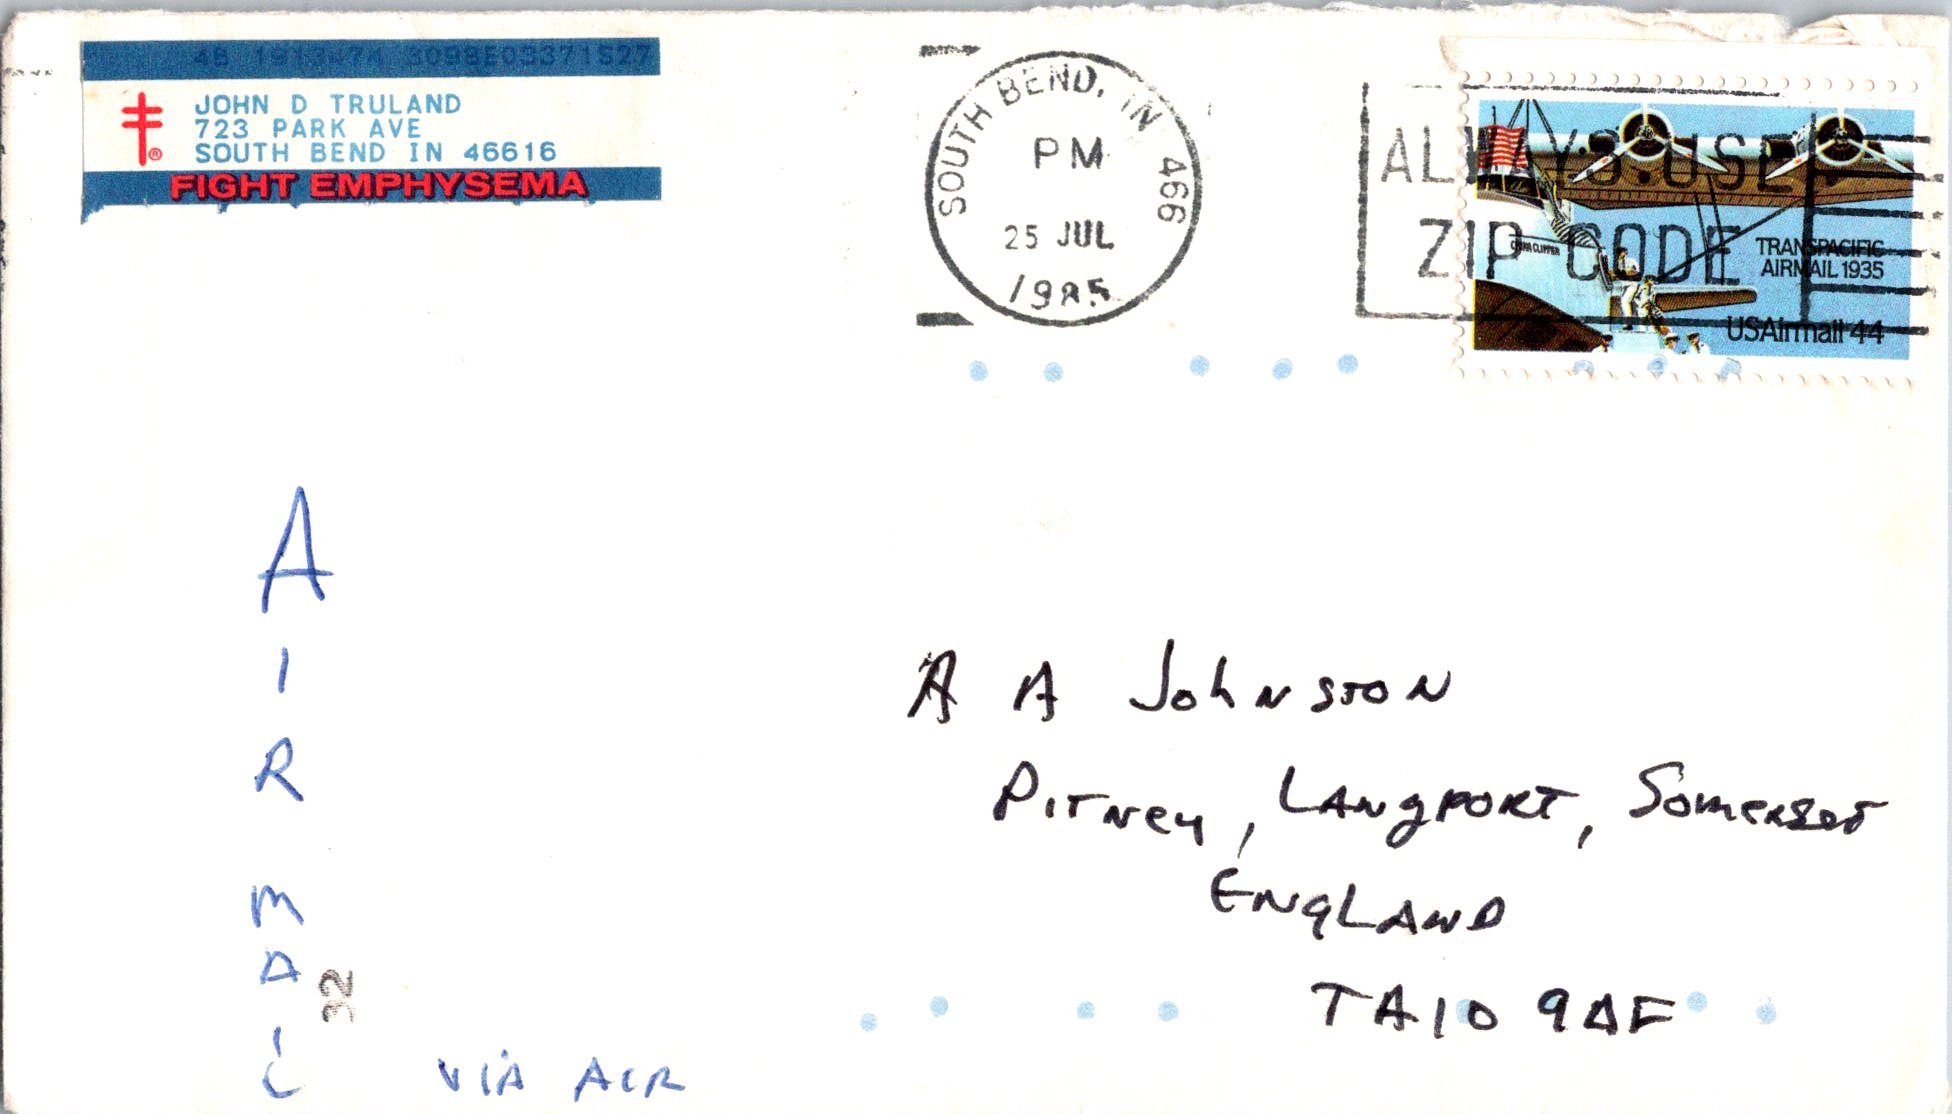 4B 1913474 3098E03371S27
JOHN D TRULAND
723 PARK AVE
SOUTH BEND IN 46616
FIGHT EMPHYSEMA
®
SOUTH BEND, IN 466
PM
25 JUL
1985
ALWAYS USE
ZIP CODE
CHINA CLIPPER
TRANSPACIFIC
AIRMAIL 1935
USAirmail 44
AIR MAIL
32
VIA AIR
A A JohNSTON
PITNey, LANgPORT, SomeRSeT
ENgLAND
TA10 9AF